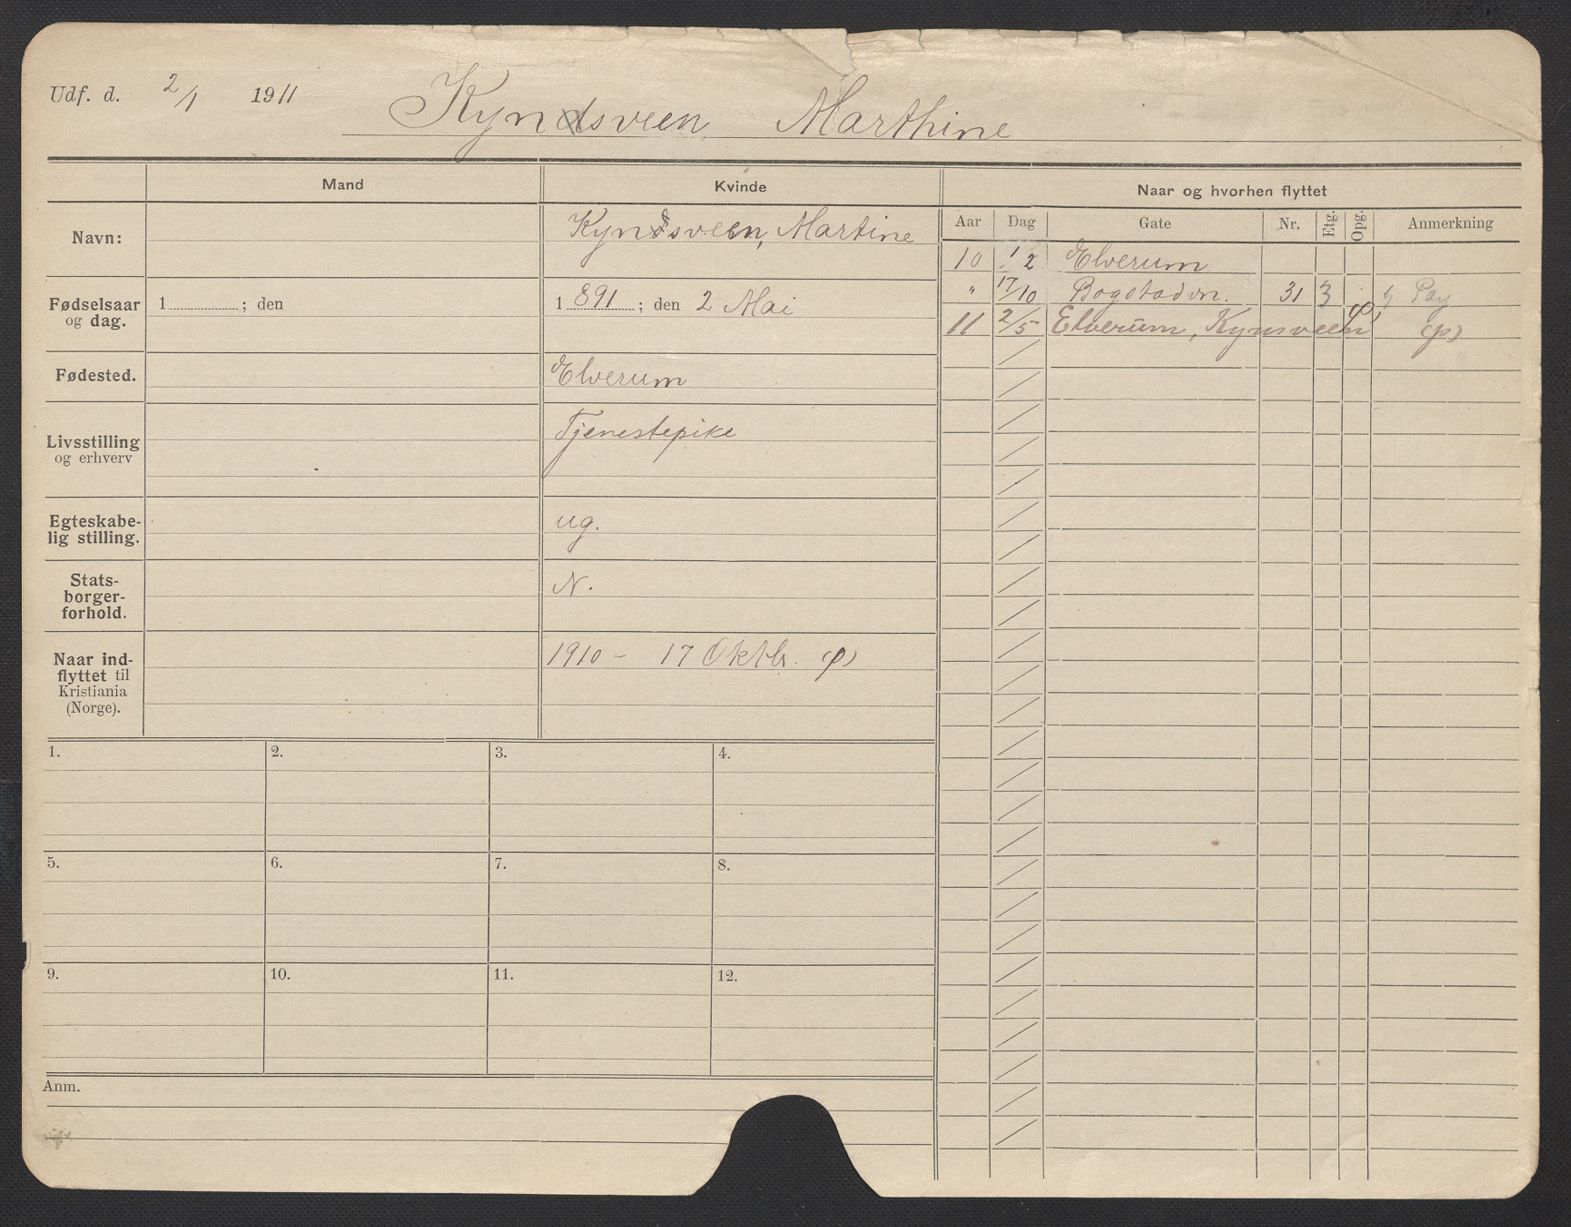 Udf. d. 2/1 1911
Kyndsveen, Marthine
Mand
Kvinde
Naar og hvorhen flyttet
Aar Dag Gate Nr. Etg. Opg. Anmerkning
Navn:
Kyndsveen, Martine
10 1/2 Elverum
" 17/10 Bogstadvn. 31 3
11 2/5 Elverum, Kynsveen (p)
Fødselsaar
og dag.
1 ; den
1 891 ; den 2 Mai
Fødested.
Elverum
Livsstilling
og erhverv
Tjenestepike
Egteskabe-
lig stilling.
ug.
Stats-
borger-
forhold.
N.
Naar ind-
flyttet til
Kristiania
(Norge).
1910 - 17 Oktbr. (p)
1. 2. 3. 4.
5. 6. 7. 8.
9. 10. 11. 12.
Anm.